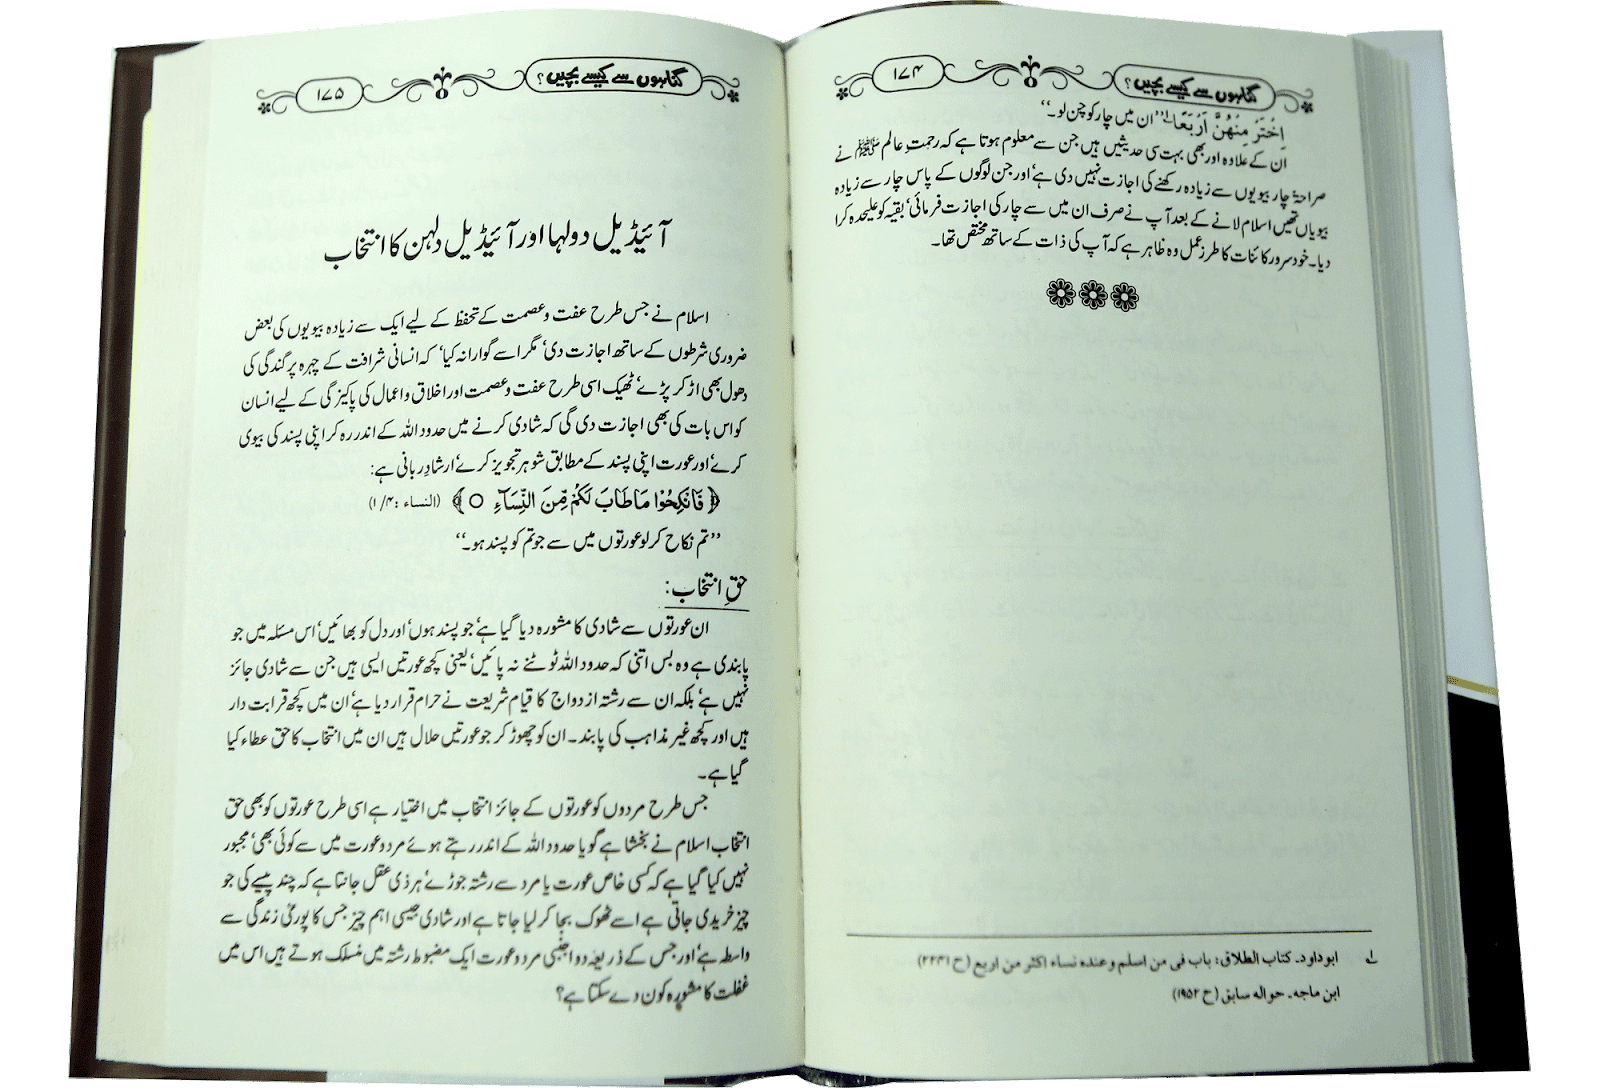 گناہوں سے کیسے بچیں؟
۱۷۴
اِخْتَرْ مِنْهُنَّ اَرْبَعًا۔ ”ان میں چار کو چن لو۔“
ان کے علاوہ اور بھی بہت سی حدیثیں ہیں جن سے معلوم ہوتا ہے کہ رحمتِ عالم ﷺ نے
صراحۃً چار بیویوں سے زیادہ رکھنے کی اجازت نہیں دی ہے‘ اور جن لوگوں کے پاس چار سے زیادہ
بیویاں تھیں اسلام لانے کے بعد آپ نے صرف ان میں سے چار کی اجازت فرمائی‘ بقیہ کو علیحدہ کرا
دیا۔ خود سرور کائنات کا طرز عمل وہ ظاہر ہے کہ آپ کی ذات کے ساتھ مختص تھا۔
۱ ابوداود۔ کتاب الطلاق: باب فی من اسلم وعندہ نساء اکثر من اربع (ح ۲۲۴۱)
ابن ماجہ۔ حوالہ سابق (ح ۱۹۵۲)
گناہوں سے کیسے بچیں؟
۱۷۵
آئیڈیل دولہا اور آئیڈیل دلہن کا انتخاب
اسلام نے جس طرح عفت وعصمت کے تحفظ کے لیے ایک سے زیادہ بیویوں کی بعض
ضروری شرطوں کے ساتھ اجازت دی‘ مگر اسے گوارا نہ کیا‘ کہ انسانی شرافت کے چہرہ پر گندگی کی
دھول بھی اڑ کر پڑے‘ ٹھیک اسی طرح عفت وعصمت اور اخلاق واعمال کی پاکیزگی کے لیے انسان
کو اس بات کی بھی اجازت دی گی کہ شادی کرنے میں حدود اللہ کے اندر رہ کر اپنی پسند کی بیوی
کرے‘ اور عورت اپنی پسند کے مطابق شوہر تجویز کرے‘ ارشادِ ربانی ہے:
﴿فَانْكِحُوْا مَا طَابَ لَكُمْ مِّنَ النِّسَآءِ ○﴾ (النساء :۱/۴)
”تم نکاح کر لو عورتوں میں سے جو تم کو پسند ہو۔“
حقِ انتخاب:
ان عورتوں سے شادی کا مشورہ دیا گیا ہے‘ جو پسند ہوں‘ اور دل کو بھائیں‘ اس مسئلہ میں جو
پابندی ہے وہ بس اتنی کہ حدود اللہ ٹوٹنے نہ پائیں‘ یعنی کچھ عورتیں ایسی ہیں جن سے شادی جائز
نہیں ہے‘ بلکہ ان سے رشتہ ازدواج کا قیام شریعت نے حرام قرار دیا ہے‘ ان میں کچھ قرابت دار
ہیں اور کچھ غیر مذاہب کی پابند۔ ان کو چھوڑ کر جو عورتیں حلال ہیں ان میں انتخاب کا حق عطاء کیا
گیا ہے۔
جس طرح مردوں کو عورتوں کے جائز انتخاب میں اختیار ہے اسی طرح عورتوں کو بھی حق
انتخاب اسلام نے بخشا ہے گویا حدود اللہ کے اندر رہتے ہوئے مرد و عورت میں سے کوئی بھی‘ مجبور
نہیں کیا گیا ہے کہ کسی خاص عورت یا مرد سے رشتہ جوڑے‘ ہر ذی عقل جانتا ہے کہ چند پیسے کی جو
چیز خریدی جاتی ہے اسے ٹھوک بجا کر لیا جاتا ہے اور شادی جیسی اہم چیز جس کا پوری زندگی سے
واسطہ ہے‘ اور جس کے ذریعہ دو اجنبی مرد و عورت ایک مضبوط رشتہ میں منسلک ہوتے ہیں اس میں
غفلت کا مشورہ کون دے سکتا ہے؟